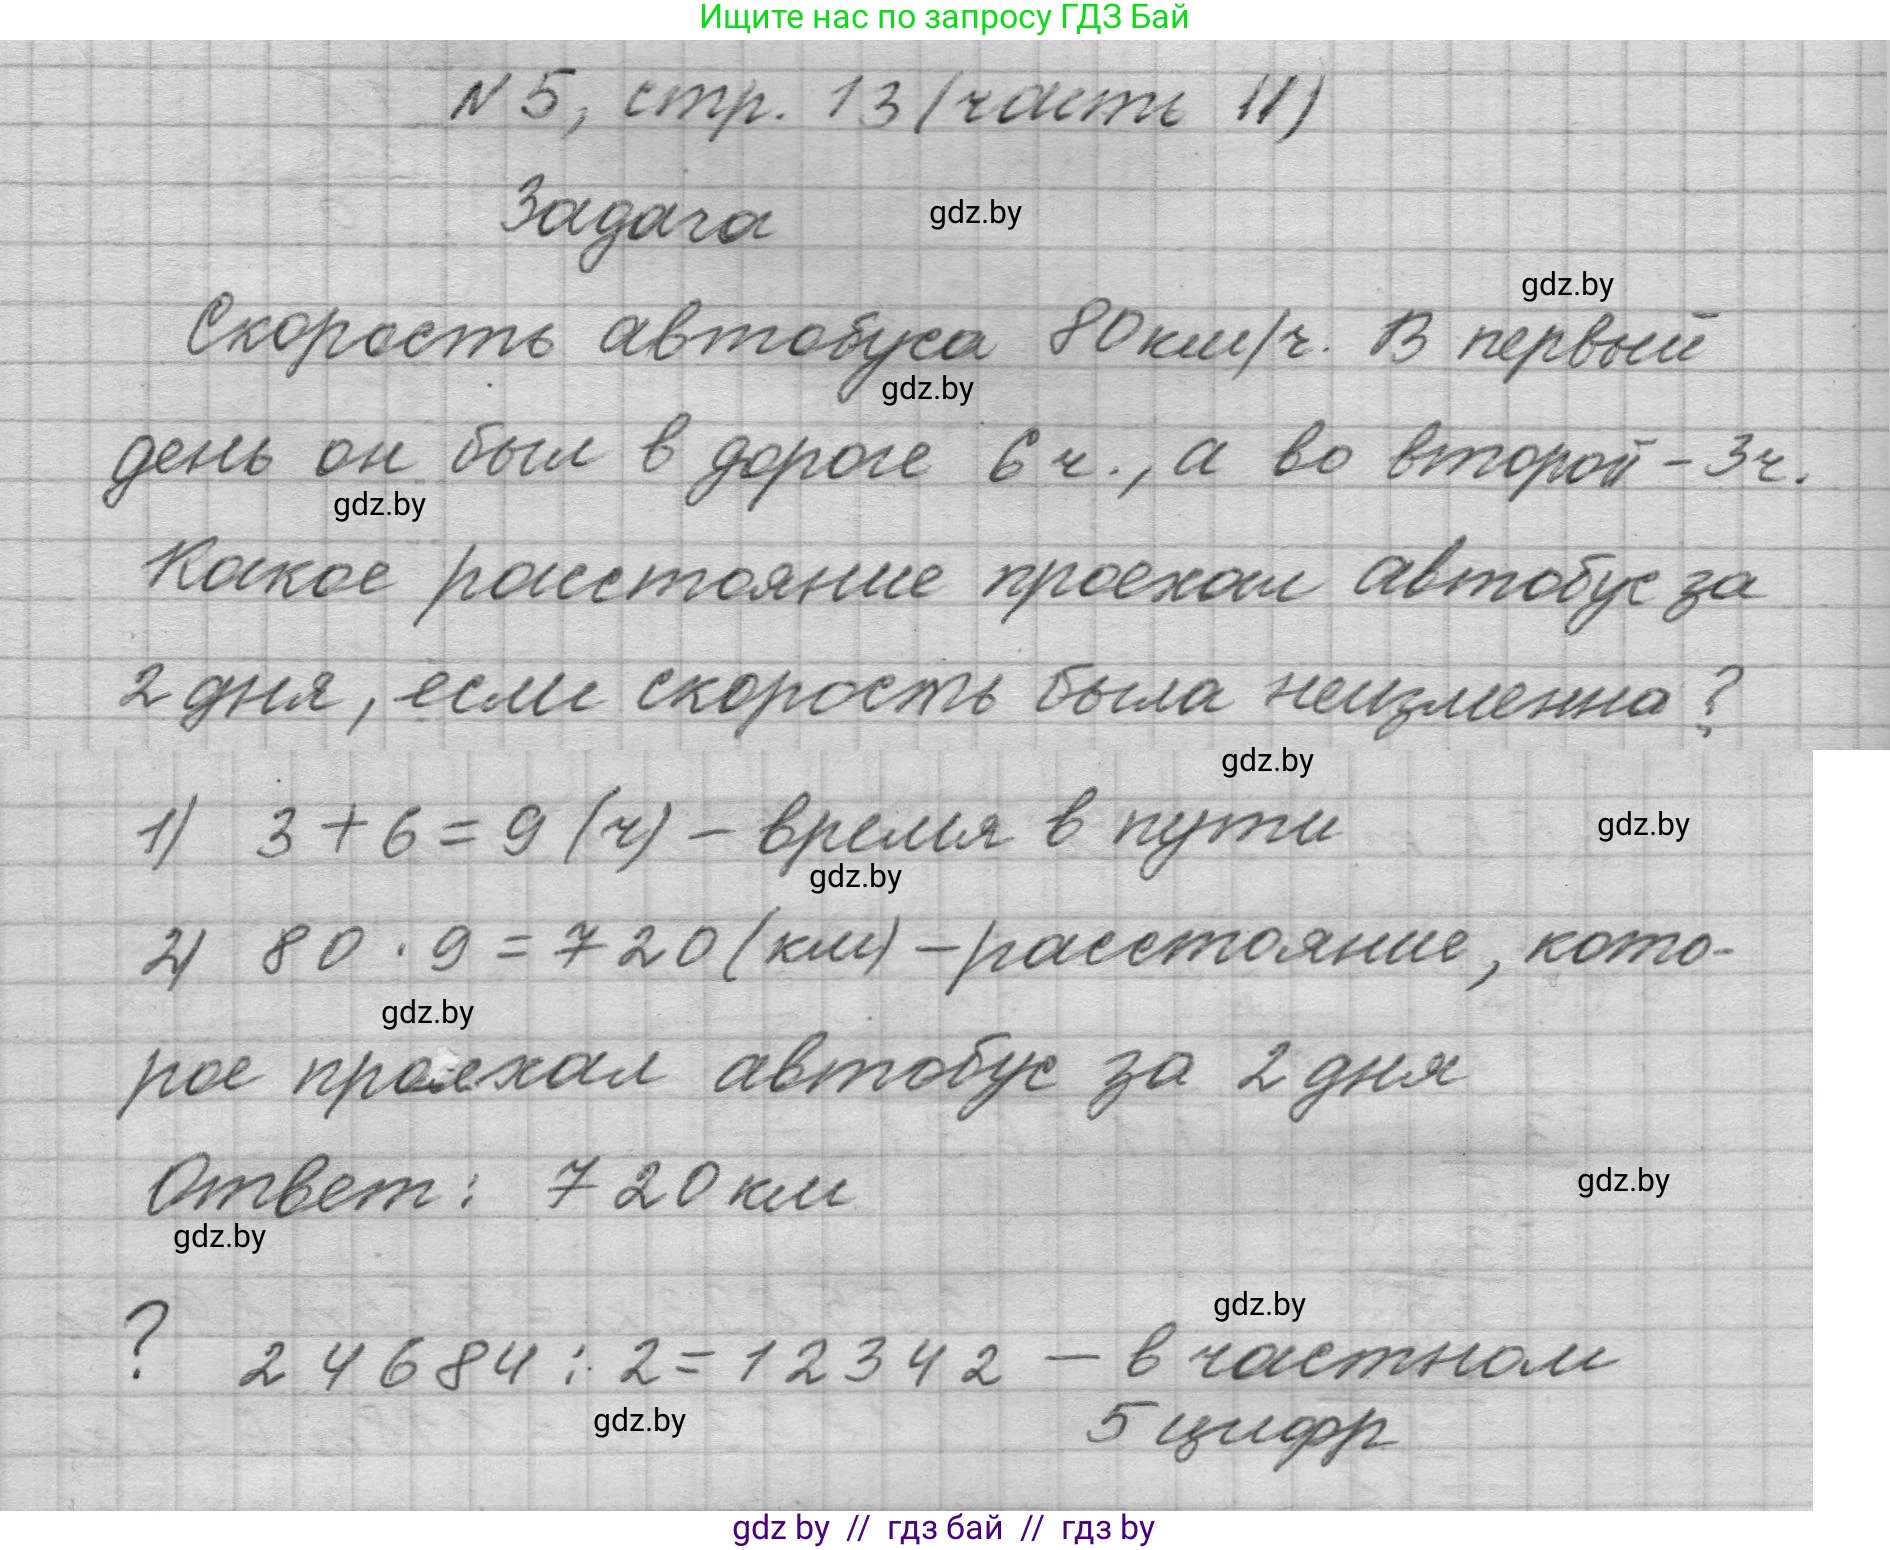 Ищите нас по запросу ГДЗ Бай
N 5, стр. 13 (часть II)
Задача
gdz.by
gdz.by
Скорость автобуса 80 км/ч. В первый
gdz.by
день он был в дороге 6 ч., а во второй - 3 ч.
gdz.by
Какое расстояние проехал автобус за
2 дня, если скорость была неизменна?
gdz.by
1) 3 + 6 = 9 (ч) - время в пути
gdz.by
gdz.by
2) 80 · 9 = 720 (км) - расстояние, кото-
gdz.by
рое проехал автобус за 2 дня
Ответ: 720 км
gdz.by
gdz.by
gdz.by
? 24684 : 2 = 12342 - в частном
5 цифр
gdz.by
gdz by // гдз бай // гдз by